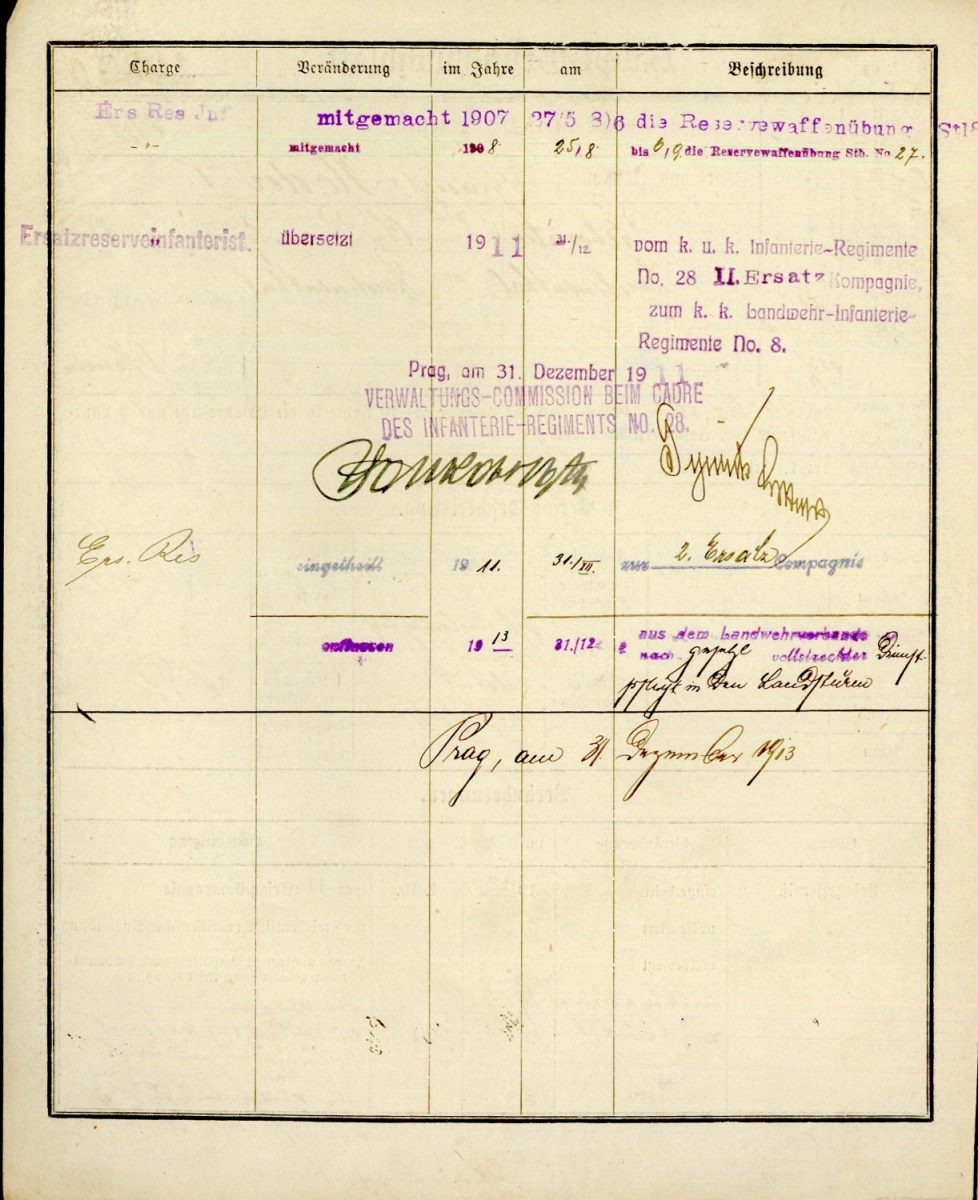 Charge Veränderung im Jahre am Beschreibung
Ers Res Inf mitgemacht 1907 27/5 3)6 die Reservewaffenübung Stl8
-„- mitgemacht 1908 25/8 bis 6/9 die Reservewaffenübung Stb. No 27.
Ersatzreserveinfanterist. übersetzt 1911 31./12. vom k. u. k. Infanterie-Regimente
No. 28 II. Ersatz Kompagnie,
zum k. k. Landwehr-Infanterie-
Regimente No. 8.
Prag, am 31. Dezember 1911
VERWALTUNGS-COMMISSION BEIM CADRE
DES INFANTERIE-REGIMENTS NO. 28.
Ers. Res eingetheilt 1911. 31./XII. zur 2. Ersatz Compagnie
entlassen 1913 31./12. aus dem Landwehrverbande
nach gesetzl vollstreckter Dienst
pflicht in den Landsturm
Prag, am 31. Dezember 1913